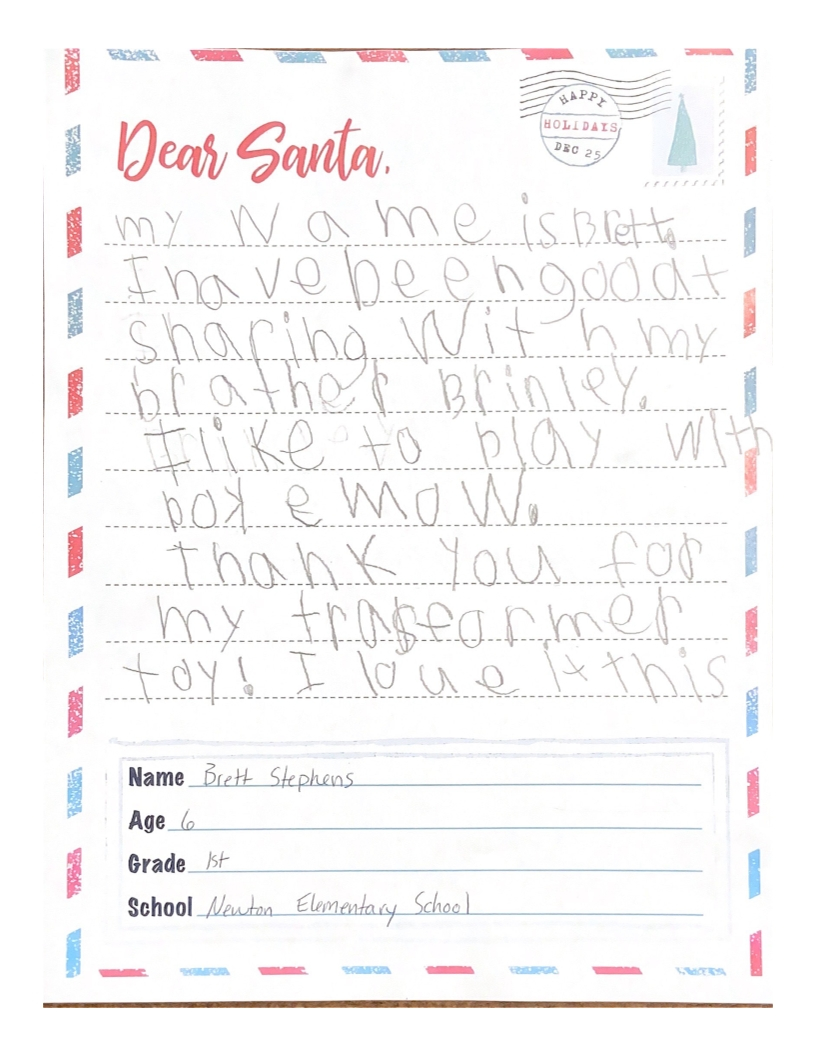 HAPPY
HOLIDAYS
DEC 25
Dear Santa,
my Name is Brett.
I have been good at
sharing With my
brather Brinley.
I like to play with
pokemoN.
thank you for
my trasformer
toy! I loue it this
Name Brett Stephens
Age 6
Grade 1st
School Newton Elementary School